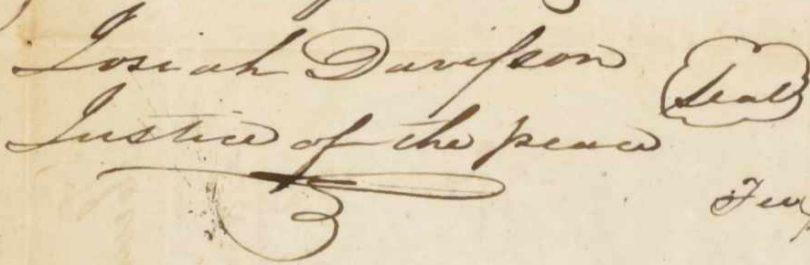 Josiah Davisson
Justice of the peace
Seal